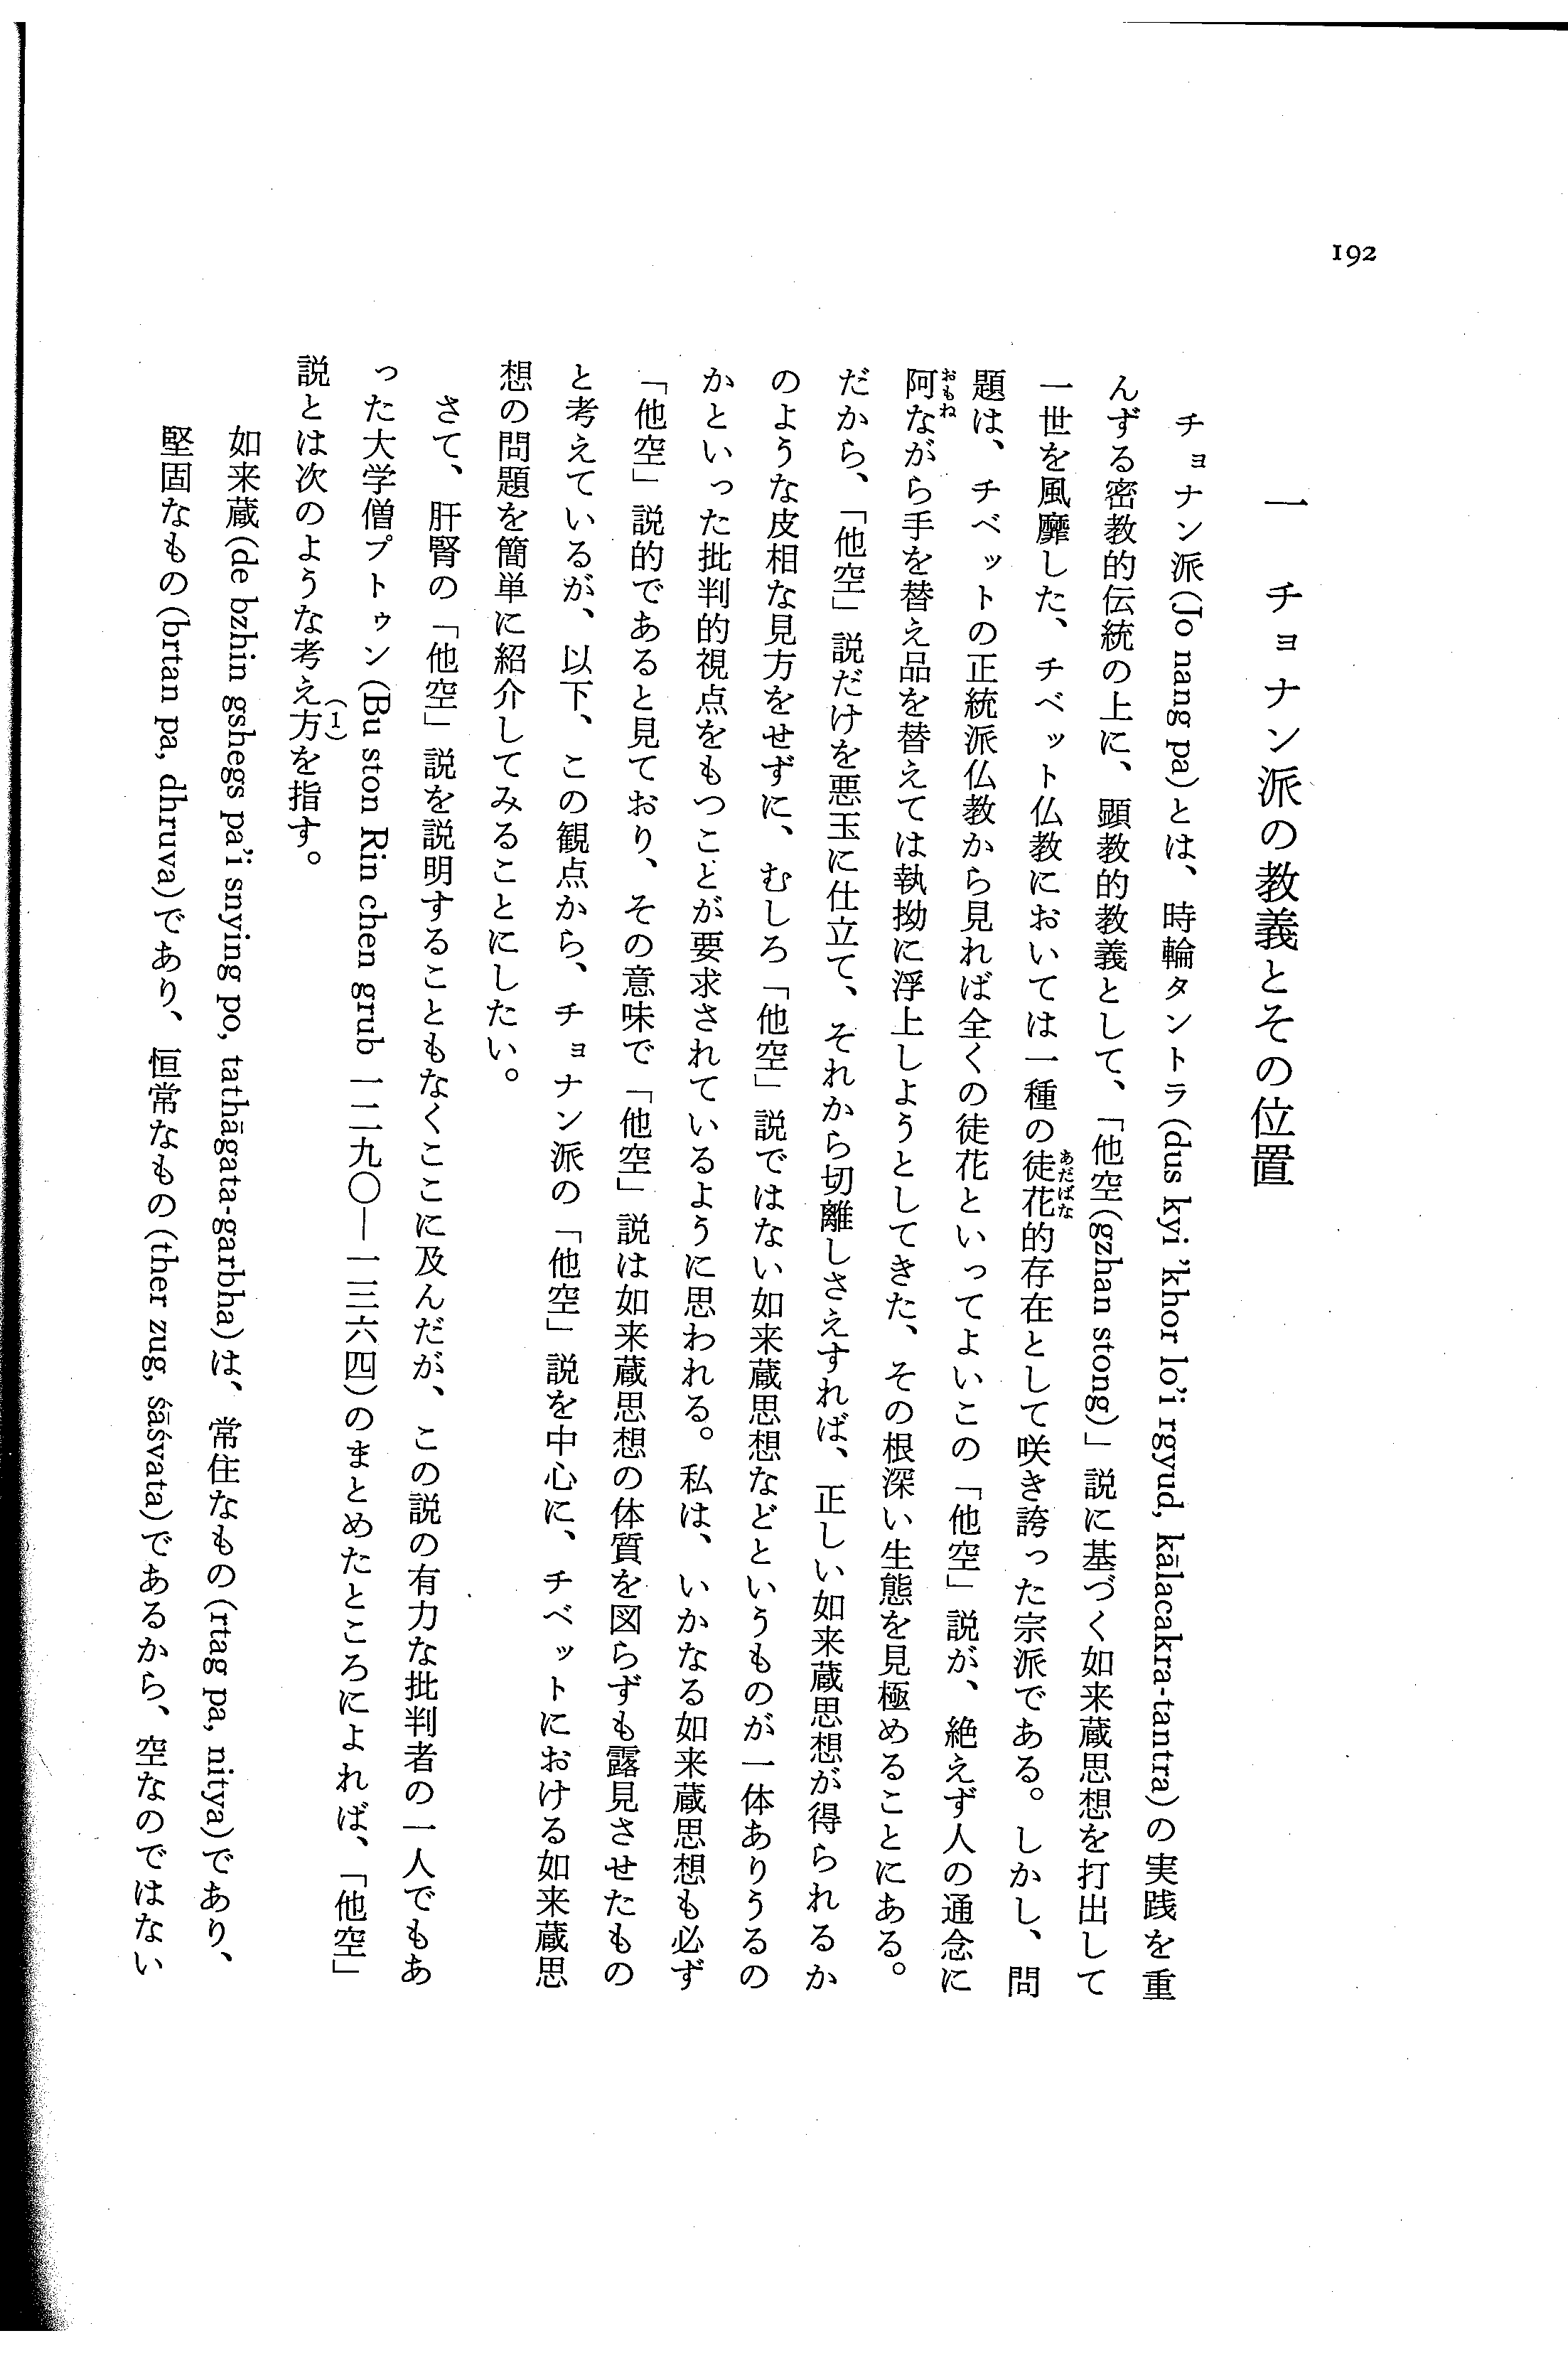 192
一　チョナン派の教義とその位置
チョナン派(Jo nang pa)とは、時輪タントラ(dus kyi ’khor lo’i rgyud, kālacakra-tantra)の実践を重
んずる密教的伝統の上に、顕教的教義として、「他空(gzhan stong)」説に基づく如来蔵思想を打出して
一世を風靡した、チベット仏教においては一種の徒花(あだばな)的存在として咲き誇った宗派である。しかし、問
題は、チベットの正統派仏教から見れば全くの徒花といってよいこの「他空」説が、絶えず人の通念に
阿(おもね)ながら手を替え品を替えては執拗に浮上しようとしてきた、その根深い生態を見極めることにある。
だから、「他空」説だけを悪玉に仕立て、それから切離しさえすれば、正しい如来蔵思想が得られるか
のような皮相な見方をせずに、むしろ「他空」説ではない如来蔵思想などというものが一体ありうるの
かといった批判的視点をもつことが要求されているように思われる。私は、いかなる如来蔵思想も必ず
「他空」説的であると見ており、その意味で「他空」説は如来蔵思想の体質を図らずも露見させたもの
と考えているが、以下、この観点から、チョナン派の「他空」説を中心に、チベットにおける如来蔵思
想の問題を簡単に紹介してみることにしたい。
さて、肝腎の「他空」説を説明することもなくここに及んだが、この説の有力な批判者の一人でもあ
った大学僧プトゥン(Bu ston Rin chen grub 一二九〇—一三六四)のまとめたところによれば、「他空」
説とは次のような考え方(1)を指す。
如来蔵(de bzhin gshegs pa’i snying po, tathāgata-garbha)は、常住なもの(rtag pa, nitya)であり、
堅固なもの(brtan pa, dhruva)であり、恒常なもの(ther zug, śāśvata)であるから、空なのではない